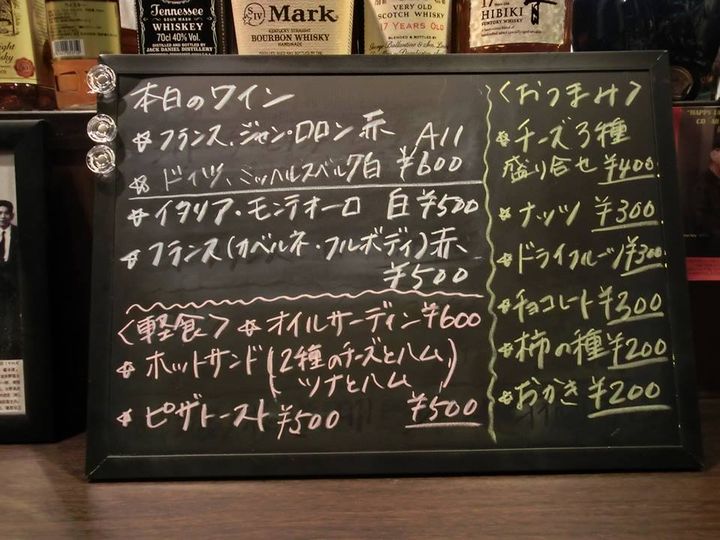 Tennessee
WHISKEY
70cl 40% Vol.
JACK DANIEL DISTILLERY
Mark
KENTUCKY STRAIGHT
BOURBON WHISKY
HANDMADE
VERY OLD
SCOTCH WHISKY
17 YEARS OLD
BLENDED & BOTTLED BY
17
HIBIKI
SUNTORY WHISKY
本日のワイン
☆フランス、ジャン・ロロン 赤 All
☆ドイツ、ミッヘルスベルク白 ¥600
☆イタリア・モンテオーロ 白¥500
☆フランス(カベルネ・フルボディ)赤、
¥500
〈軽食〉☆オイルサーディン¥600
☆ホットサンド(2種のチーズとハム
ツナとハム)
¥500
☆ピザトースト¥500
〈おつまみ〉
☆チーズ3種
盛り合せ¥400
☆ナッツ ¥300
☆ドライフルーツ¥300
☆チョコレート¥300
☆柿の種¥200
☆おかき¥200